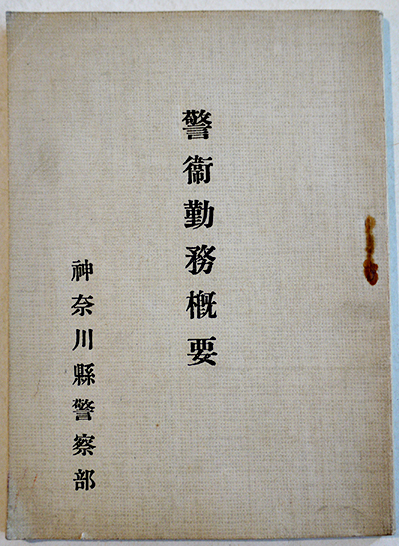 警衞勤務概要
神奈川縣警察部